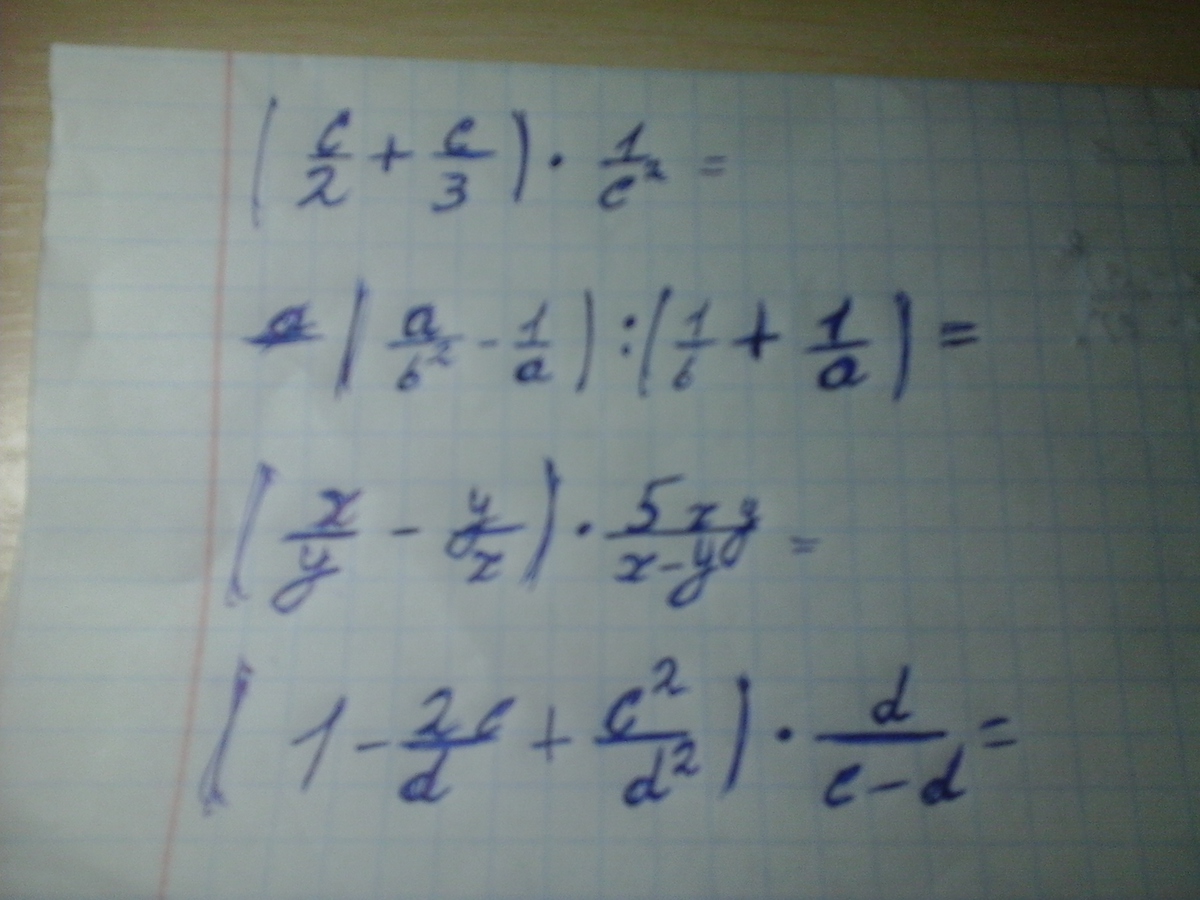 (c/2 + c/3) · 1/c² =
(a/b² - 1/a) : (1/b + 1/a) =
(x/y - y/x) · 5xy/(x-y) =
(1 - 2c/d + c²/d²) · d/(c-d) =